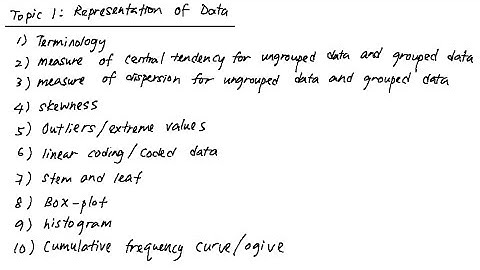 Topic 1: Representation of Data
1) Terminology
2) measure of central tendency for ungrouped data and grouped data
3) measure of dispersion for ungrouped data and grouped data
4) skewness
5) Outliers/extreme values
6) linear coding/coded data
7) stem and leaf
8) Box-plot
9) histogram
10) Cumulative frequency curve/ogive